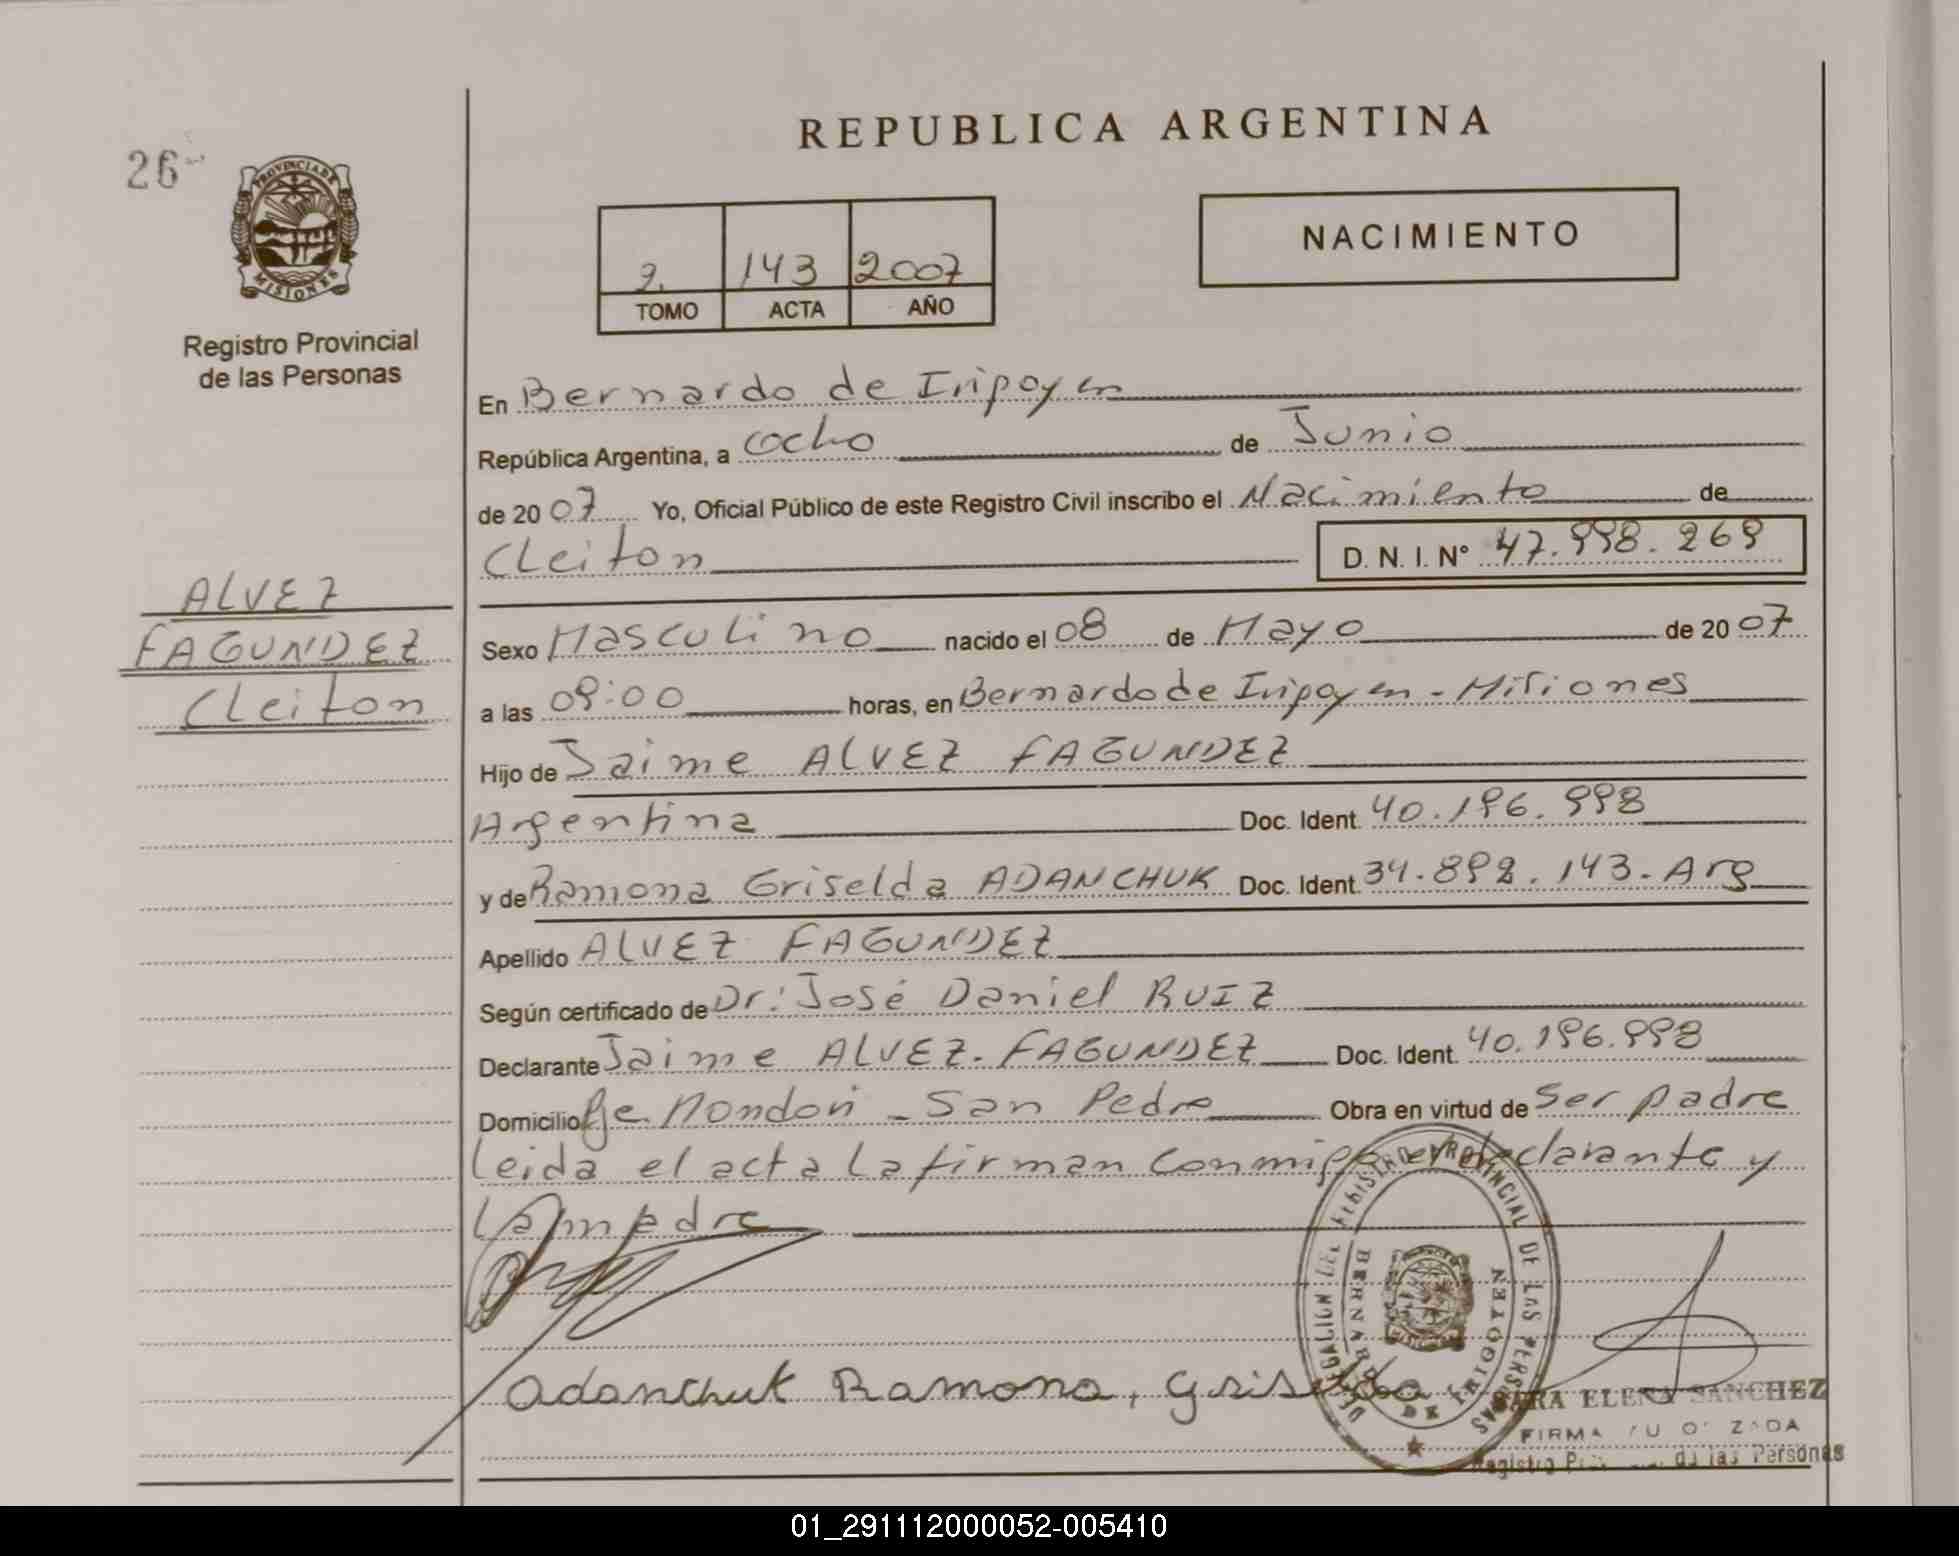 26
PROVINCIA DE
MISIONES
Registro Provincial
de las Personas
REPUBLICA ARGENTINA
2. 143 2007
TOMO ACTA AÑO
NACIMIENTO
En Bernardo de Iripoyen
República Argentina, a ocho de Junio
de 2007 Yo, Oficial Público de este Registro Civil inscribo el Nacimiento de
Cleiton D. N. I. N° 47.998.269
ALVEZ
FAGUNDEZ
Cleiton
Sexo Masculino nacido el 08 de Mayo de 2007
a las 09:00 horas, en Bernardo de Iripoyen - Misiones
Hijo de Jaime ALVEZ FAGUNDEZ
Argentina Doc. Ident. 40.196.998
y de Ramona Griselda ADANCHUK Doc. Ident. 34.892.143. Arg
Apellido ALVEZ FAGUNDEZ
Según certificado de Dr. José Daniel RUIZ
Declarante Jaime ALVEZ. FAGUNDEZ Doc. Ident. 40.196.998
Domicilio Pje. Mondori - San Pedro Obra en virtud de Ser padre
Leida el acta la firman conmigo el declarante y
la madre
Adanchuk Ramona, Griselda
DELEGACION DEL REGISTRO PROVINCIAL DE LAS PERSONAS
BERNARDO DE IRIGOYEN
SARA ELENA SANCHEZ
FIRMA AUTORIZADA
Registro de las Personas
01_291112000052-005410